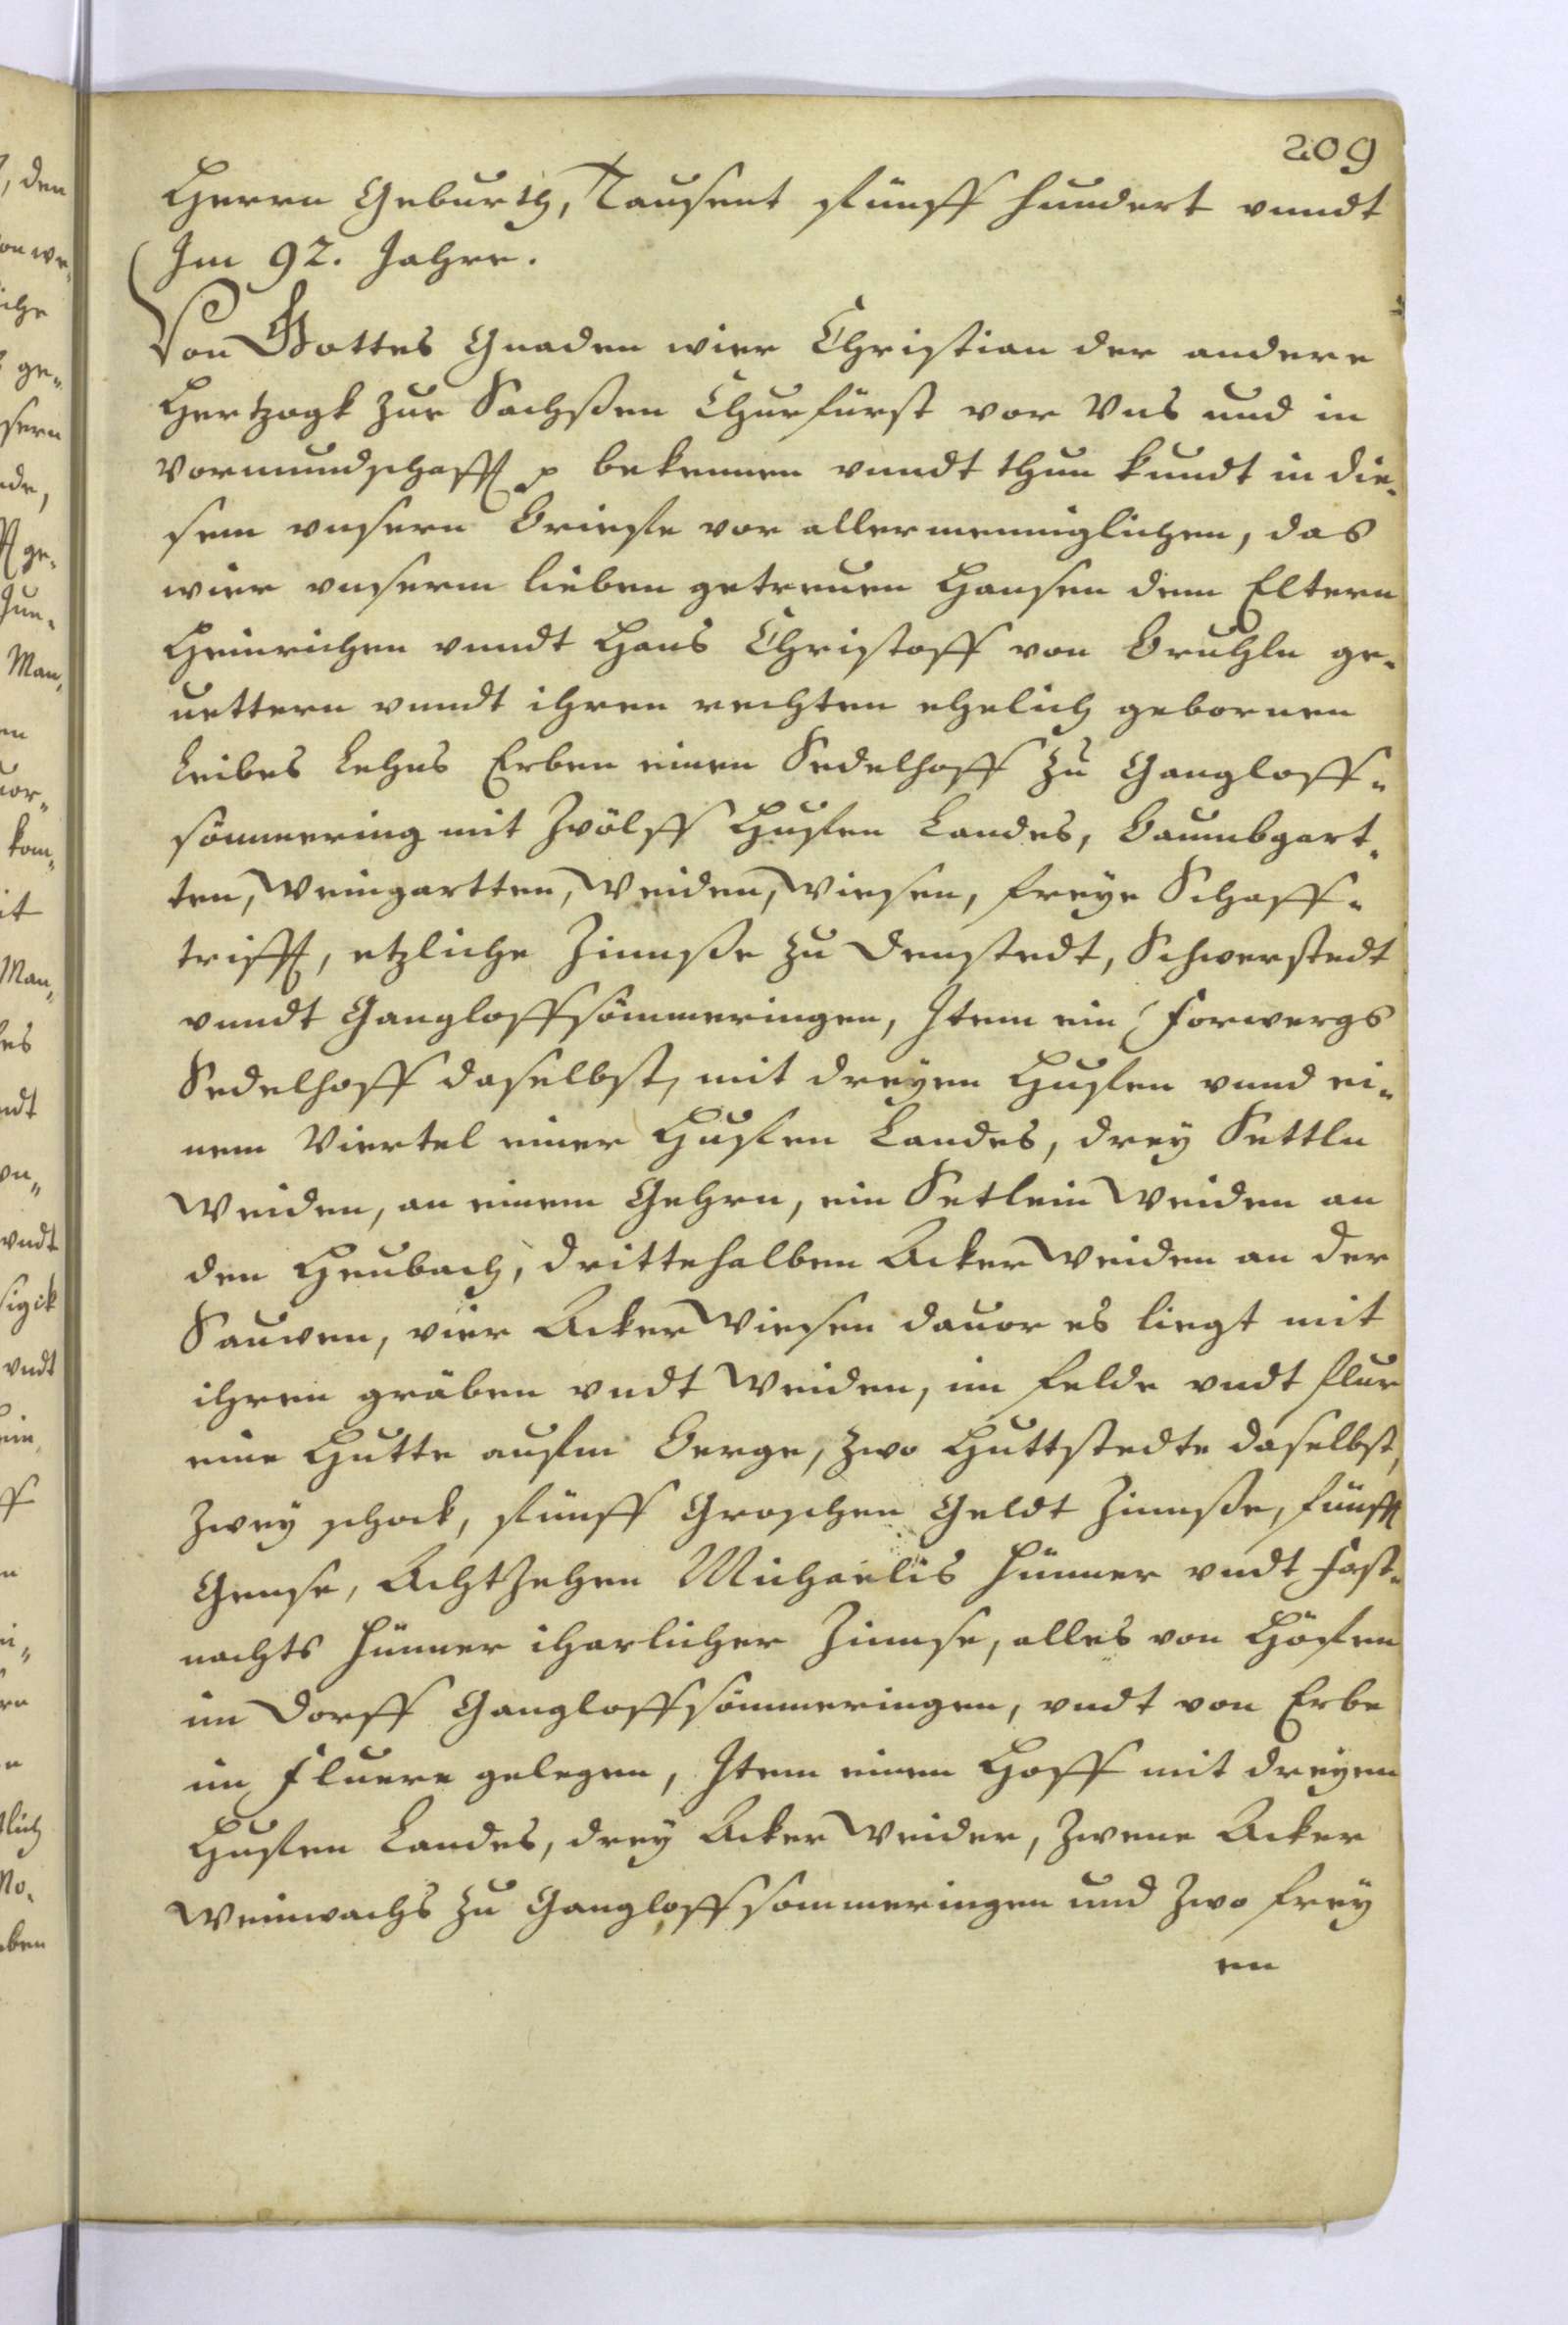 209
Herrn Geburth, Tausent fünff hundert vnndt
Im 92. Jahre.
Von Gottes Gnaden wier Christian der andere
Hertzogk zur Sachßen Churfürst vor Vns und in
Vormundschafft p bekennen vnndt thun kundt in die-
sem vnsern Brieffe vor allermenniglichen, das
wier vnserm lieben getreuen Hansen dem Eltern
Heinrichen vnndt Hans Christoff von Bruhln ge-
uettern vnndt ihren rechten ehelich gebornen
Leibes Lehns Erben einen Sedelhoff zu Gangloff-
sömmering mit Zvölff Huffen Landes, Baumbgart-
ten, Weingartten, Weiden, Wiesen, freye Schaff-
trifft, etzliche Zinnße zu Denstedt, Schwerstedt
vnndt Gangloffsömmeringen, Item ein Forwergs
Sedelhoff daselbst, mit dreyen Huffen vnnd ei-
nem Viertel einer Huffen Landes, drey Settln
Weiden, an einem Gehrn, ein Setlein Weiden an
den Heubach, drittehalben Acker Weiden an der
Sauwen, vier Acker Wiesen dauor es liegt mit
ihren gräben vndt Weiden, im felde vndt flur
eine Hutte auffm Berge, zwo Huttstedte daselbst,
Zwey schock, fünff Groschen Geldt Zinnße, fünff
Gense, Achtzehen Michaelis Hünner vndt Fast-
nachts Hünner iharlicher Zinnse, alles von Höffen
im Dorff Gangloffsömmeringen, vndt von Erbe
im Fluere gelegen, Item einen Hoff mit dreyen
Huffen Landes, drey Acker Weider, Zwene Acker
Weinwachs zu Gangloffsommeringen und Zwo frey
en